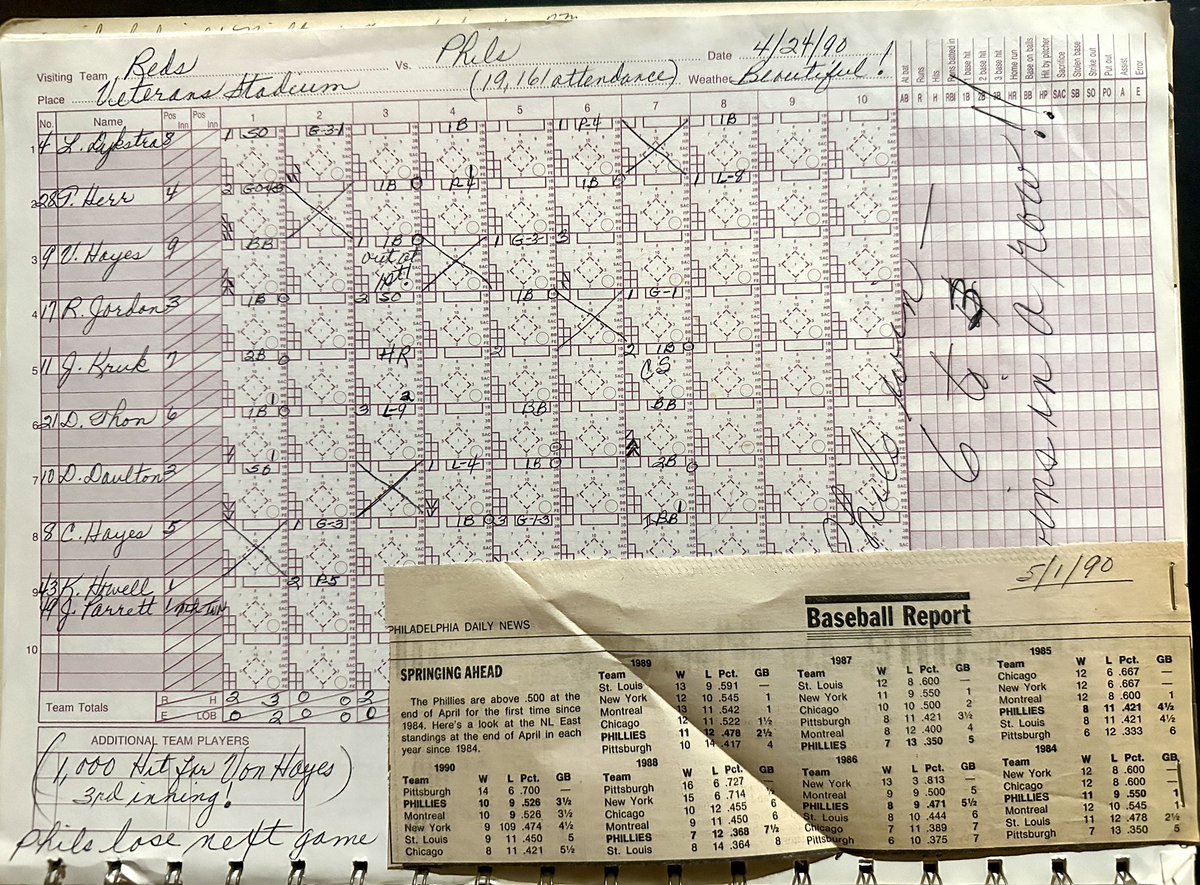 Visiting Team Reds Vs. Phils Date 4/24/90
Place Veterans Stadium (19,161 attendance) Weather Beautiful!
No. Name Pos Inn Pos Inn 1 2 3 4 5 6 7 8 9 10 AB R H RBI 1B 2B 3B HR BB HP SAC SB SO PO A E
At bat Runs Hits Runs batted in 1 base hit 2 base hit 3 base hit Home run Base on balls Hit by pitcher Sacrifice Stolen base Strike out Put out Assist Error
1 4 L. Dykstra 8 1 SO G-3-1 1B 1 P-4 1B
2 28 T. Herr 4 2 1B 1B 1 L-8
3 9 V. Hayes 9 BB 1 1B 1 G-3-1 3
out at
1st!
4 17 R. Jordon 3 1B 2 SO 1B 1 G-1
5 11 J. Kruk 7 2B HR 2 2 1B
CS
6 21 D. Thon 6 1B 3 L-9 BB BB
7 10 D. Daulton 2 SO 1 L-4 1B 2B
8 8 C. Hayes 5 1 G-3 1B 3 G-1-3 IBB
9 43 K. Howell 1 2 P-5
49 J. Parrett 1
10
Team Totals R H 2 3 0 0 2
E LOB 0 2 0 0 0
Phills
6 to 3
wins in a row!!
ADDITIONAL TEAM PLAYERS
(1,000 Hit for Von Hayes)
3rd inning!
Phils lose next game
5/1/90
PHILADELPHIA DAILY NEWS
Baseball Report
SPRINGING AHEAD
The Phillies are above .500 at the
end of April for the first time since
1984. Here's a look at the NL East
standings at the end of April in each
year since 1984.
1990
Team W L Pct. GB
Pittsburgh 14 6 .700 —
PHILLIES 10 9 .526 3½
Montreal 10 9 .526 3½
New York 9 109 .474 4½
St. Louis 9 11 .450
Chicago 8 11 .421 5½
1989
Team W L Pct. GB
St. Louis 13 9 .591 —
New York 12 10 .545 1
Montreal 13 11 .542 1
Chicago 12 11 .522 1½
PHILLIES 11 12 .478 2½
Pittsburgh 10 14 .417 4
1988
Team W L Pct. GB
Pittsburgh 16 6 .727 —
New York 15 6 .714
Chicago 10 12 .455 6
Montreal 9 11 .450 6
PHILLIES 7 12 .368 7½
St. Louis 8 14 .364 8
1987
Team W L Pct. GB
St. Louis 12 8 .600 —
New York 11 9 .550 1
Chicago 10 10 .500 2
Pittsburgh 8 11 .421 3½
Montreal 8 12 .400 4
PHILLIES 7 13 .350 5
1986
Team W L Pct. GB
New York 13 3 .813 —
Montreal 9 9 .500 5
PHILLIES 8 9 .471 5½
St. Louis 8 10 .444 6
Chicago 7 11 .389 7
Pittsburgh 6 10 .375 7
1985
Team W L Pct. GB
Chicago 12 6 .667 —
New York 12 6 .667 —
Montreal 12 8 .600 1
PHILLIES 8 11 .421 4½
St. Louis 8 11 .421 4½
Pittsburgh 6 12 .333 6
1984
Team W L Pct. GB
New York 12 8 .600 —
Chicago 12 8 .600 —
PHILLIES 11 9 .550 1
Montreal 12 10 .545 1
St. Louis 11 12 .478 2½
Pittsburgh 7 13 .350 5